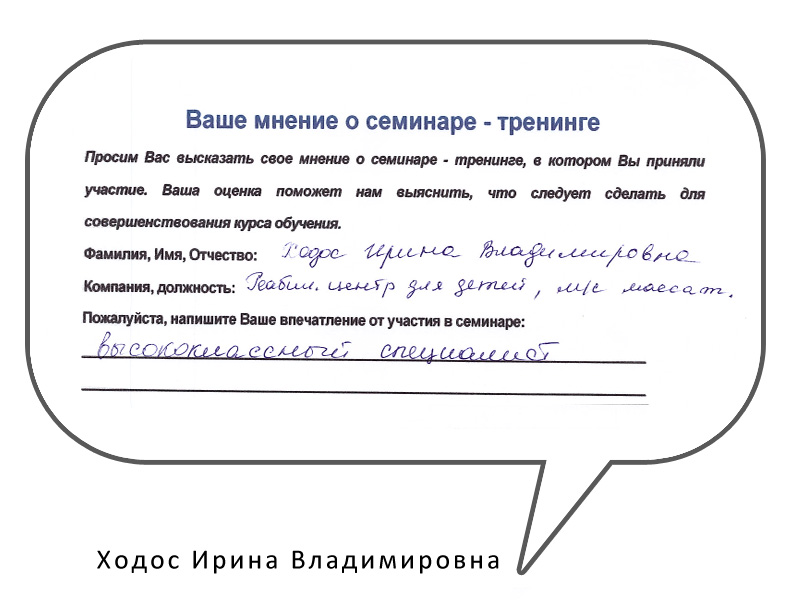 Ваше мнение о семинаре - тренинге
Просим Вас высказать свое мнение о семинаре - тренинге, в котором Вы приняли
участие. Ваша оценка поможет нам выяснить, что следует сделать для
совершенствования курса обучения.
Фамилия, Имя, Отчество: Ходос Ирина Владимировна
Компания, должность: Реабил. центр для детей, м/с массаж.
Пожалуйста, напишите Ваше впечатление от участия в семинаре:
высококлассный специалист
Ходос Ирина Владимировна